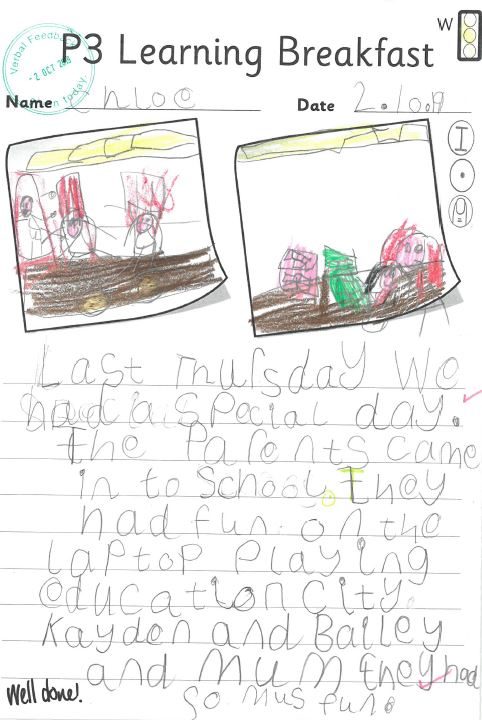 W
P3 Learning Breakfast
Verbal Feedback
-2 OCT
today
Name Chloe Date 2.10.19
I
Last Thursday We
had a special day.
The Parents came
in to School. They
had fun. on the
Laptop Playing
education City.
Kayden and Bailey
and Mum they had
so mus fun.
Well done!